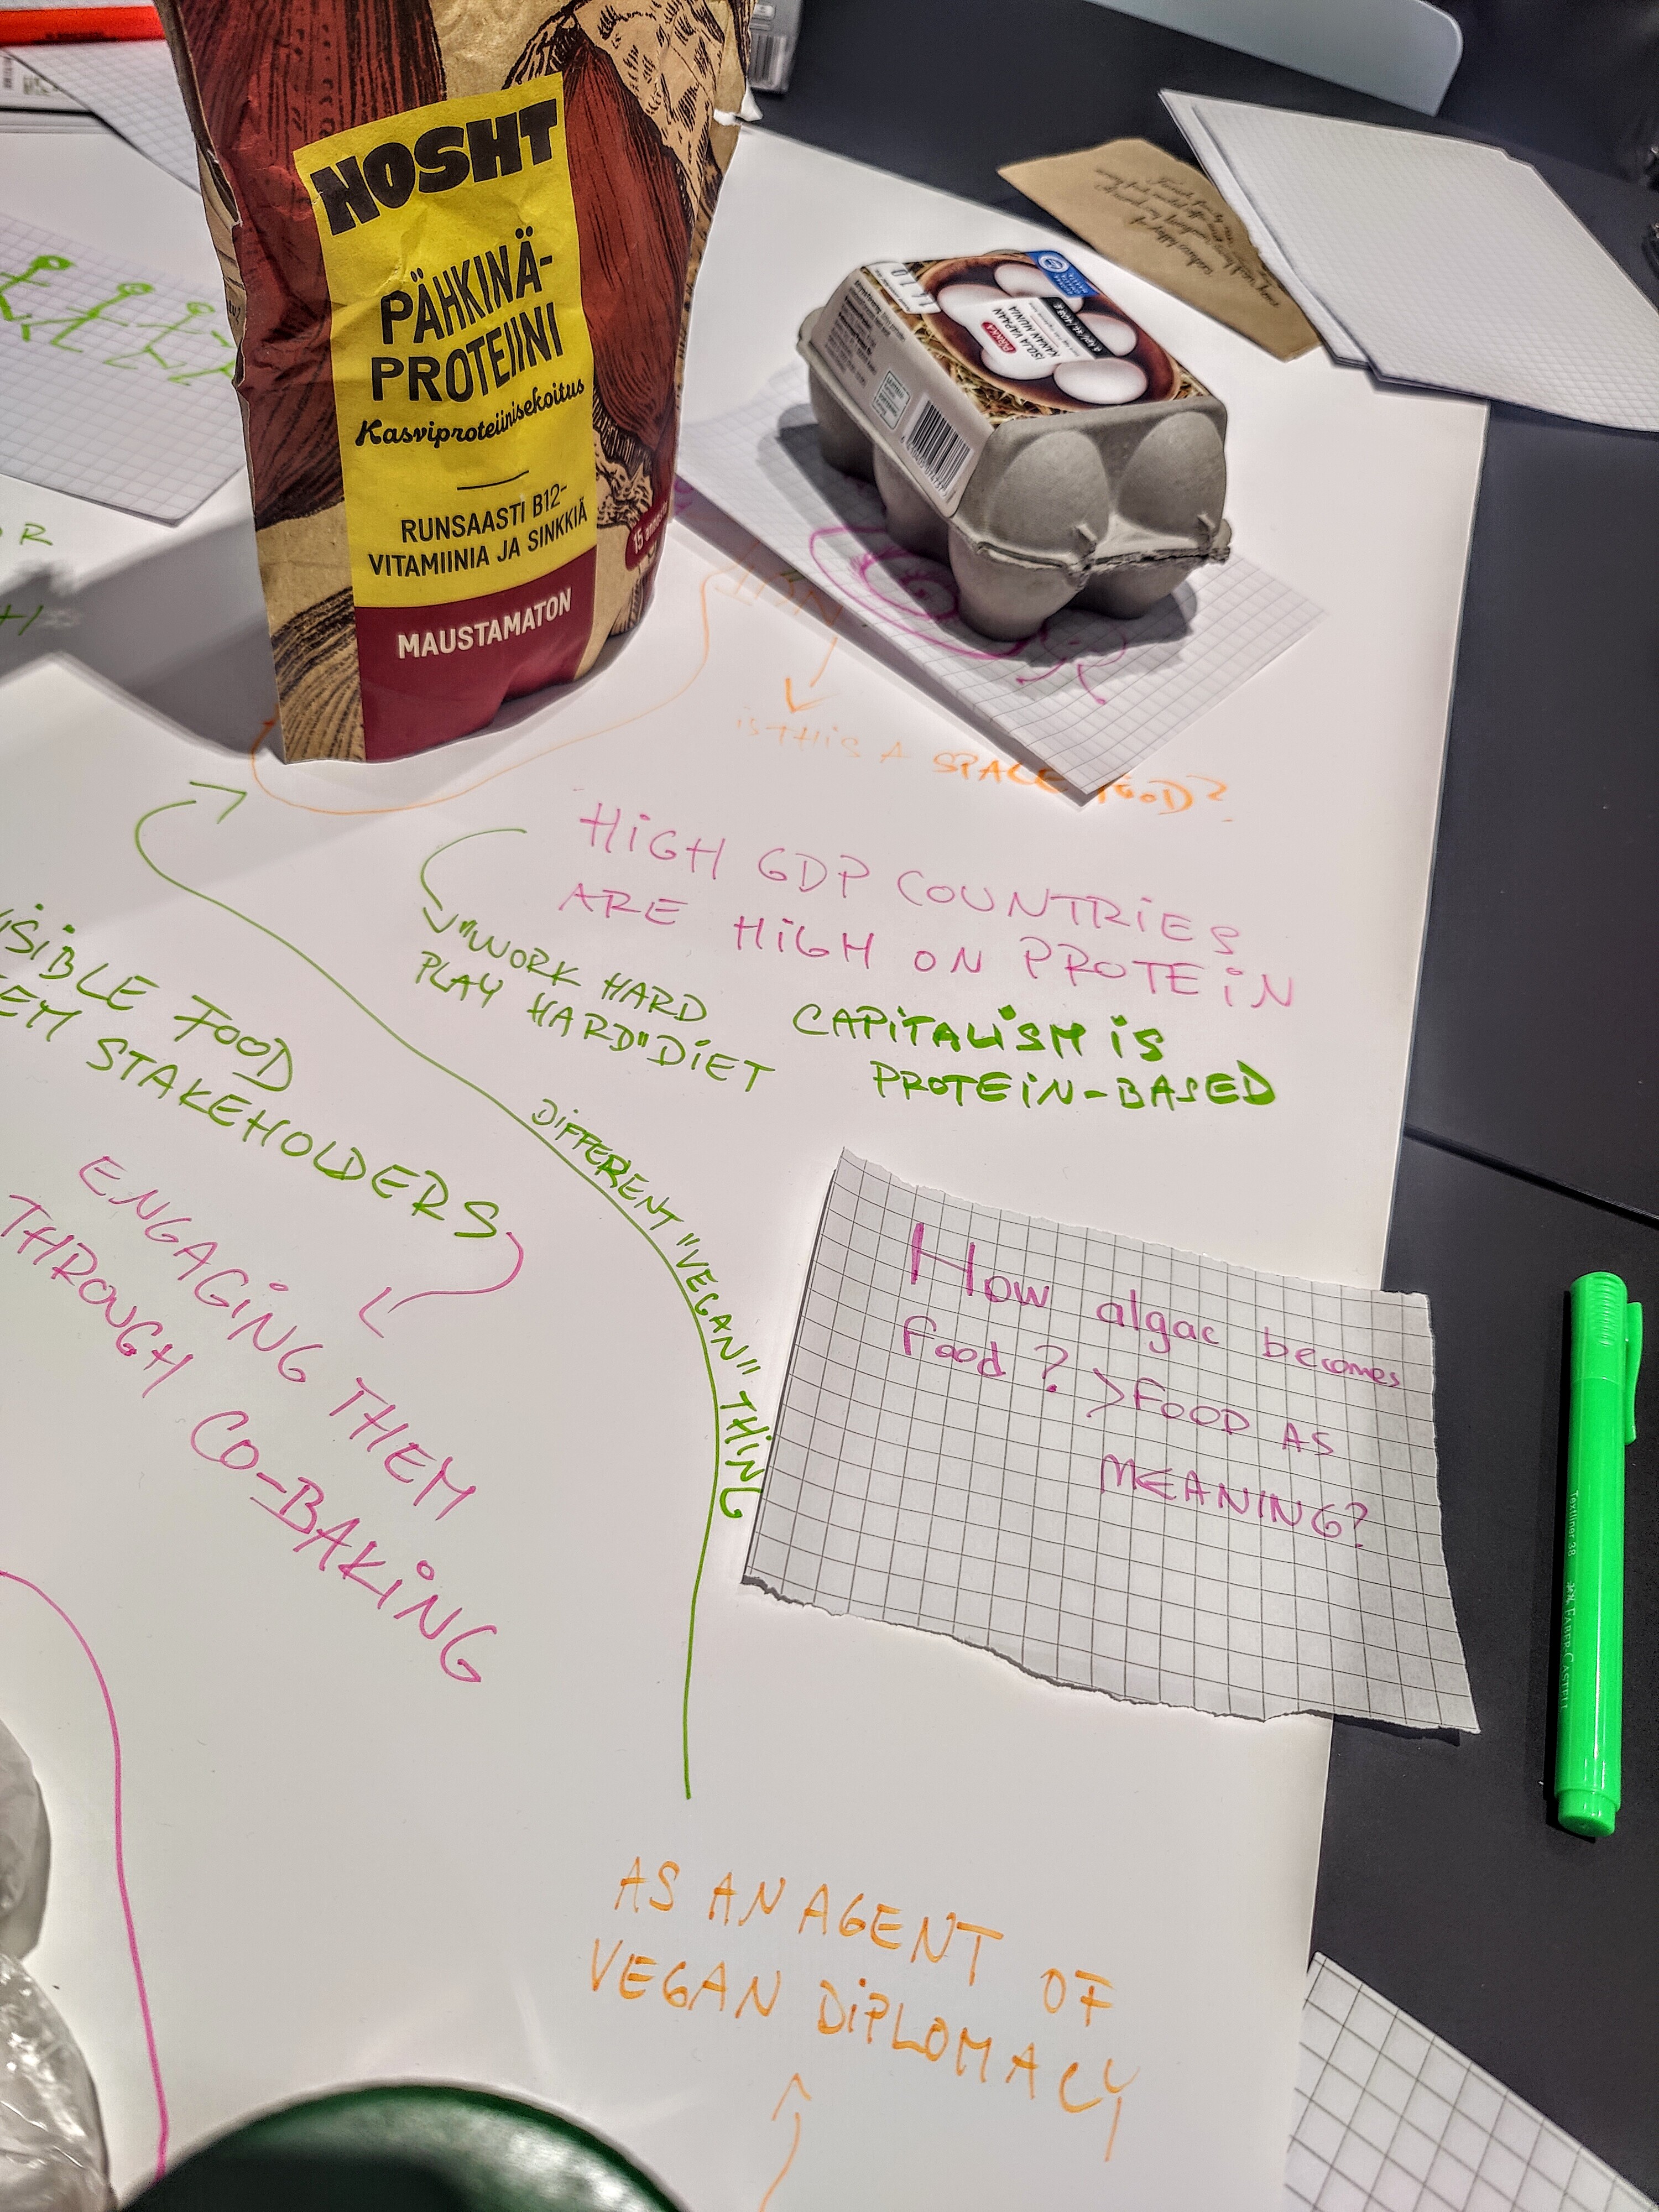 NOSHT
PÄHKINÄ-
PROTEIINI
Kasviproteiinisekoitus
RUNSAASTI B12-
VITAMIINIA JA SINKKIÄ
MAUSTAMATON
15
ISOJA VAPAAN
KANAN MUNIA
iS THiS A SPACE FOOD?
HiGH GDP COUNTRiES
ARE HiGH ON PROTEiN
"WORK HARD
PLAY HARD" DiET
CAPiTALiSM iS
PROTEiN-BASED
FOOD
STAKEHOLDERS
ENGAGiNG THEM
THROUGH CO-BAKiNG
DiFFERENT "VEGAN" THiNG
How algae becomes
food? > FOOD AS
MEANING?
AS AN AGENT OF
VEGAN DiPLOMACY
Textliner 38 FABER-CASTELL